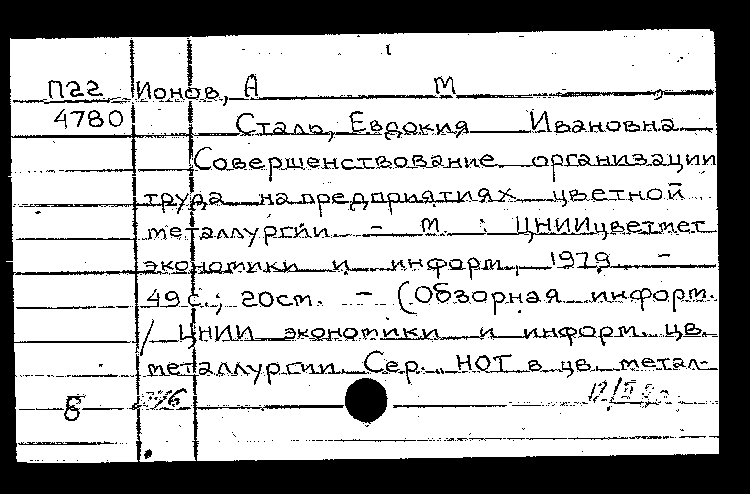 П22 Ионов, А М
4780 Сталь, Евдокия Ивановна
Совершенствование организации
труда на предприятиях цветной
металлургии. - М. : ЦНИИцветмет
экономики и информ., 1979. -
49 с.; 20 см. - (Обзорная информ.
/ ЦНИИ экономики и информ. цв.
металлургии. Сер. „НОТ в цв. метал-
Б